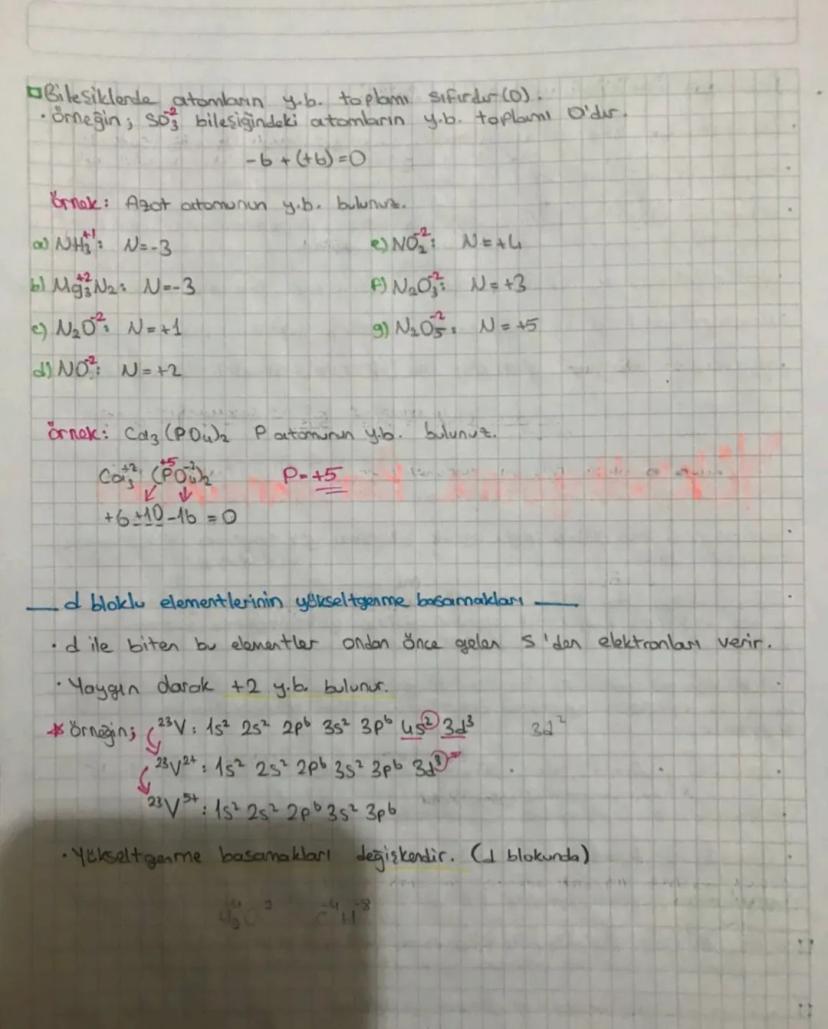 Bileşiklerde atomların y.b. toplamı sıfırdır (0).
• Örneğin; SO₃⁻² bileşiğindeki atomların y.b. toplamı 0'dır.
-6 + (+6) = 0
Örnek: Azot atomunun y.b. bulunuz.
a) NH₃⁺¹: N=-3
e) NO₂⁻²: N=+4
b) Mg₃⁺²N₂: N=-3
f) N₂O₃⁻²: N=+3
c) N₂O⁻²: N=+1
g) N₂O₅⁻²: N=+5
d) NO⁻²: N=+2
Örnek: Ca₃(PO₄)₂ P atomunun y.b. bulunuz.
Ca₃⁺² (P⁺⁵O₄⁻²)₂ P=+5
+6+10-16=0
d bloklu elementlerinin yükseltgenme basamakları
• d ile biten bu elementler ondan önce gelen s'den elektronları verir.
• Yaygın olarak +2 y.b. bulunur.
* Örneğin; ²³V: 1s² 2s² 2p⁶ 3s² 3p⁶ 4s² 3d³ 3d²
²³V²⁺: 1s² 2s² 2p⁶ 3s² 3p⁶ 3d³
²³V⁵⁺: 1s² 2s² 2p⁶ 3s² 3p⁶
• Yükseltgenme basamakları değişkendir. (d blokunda)